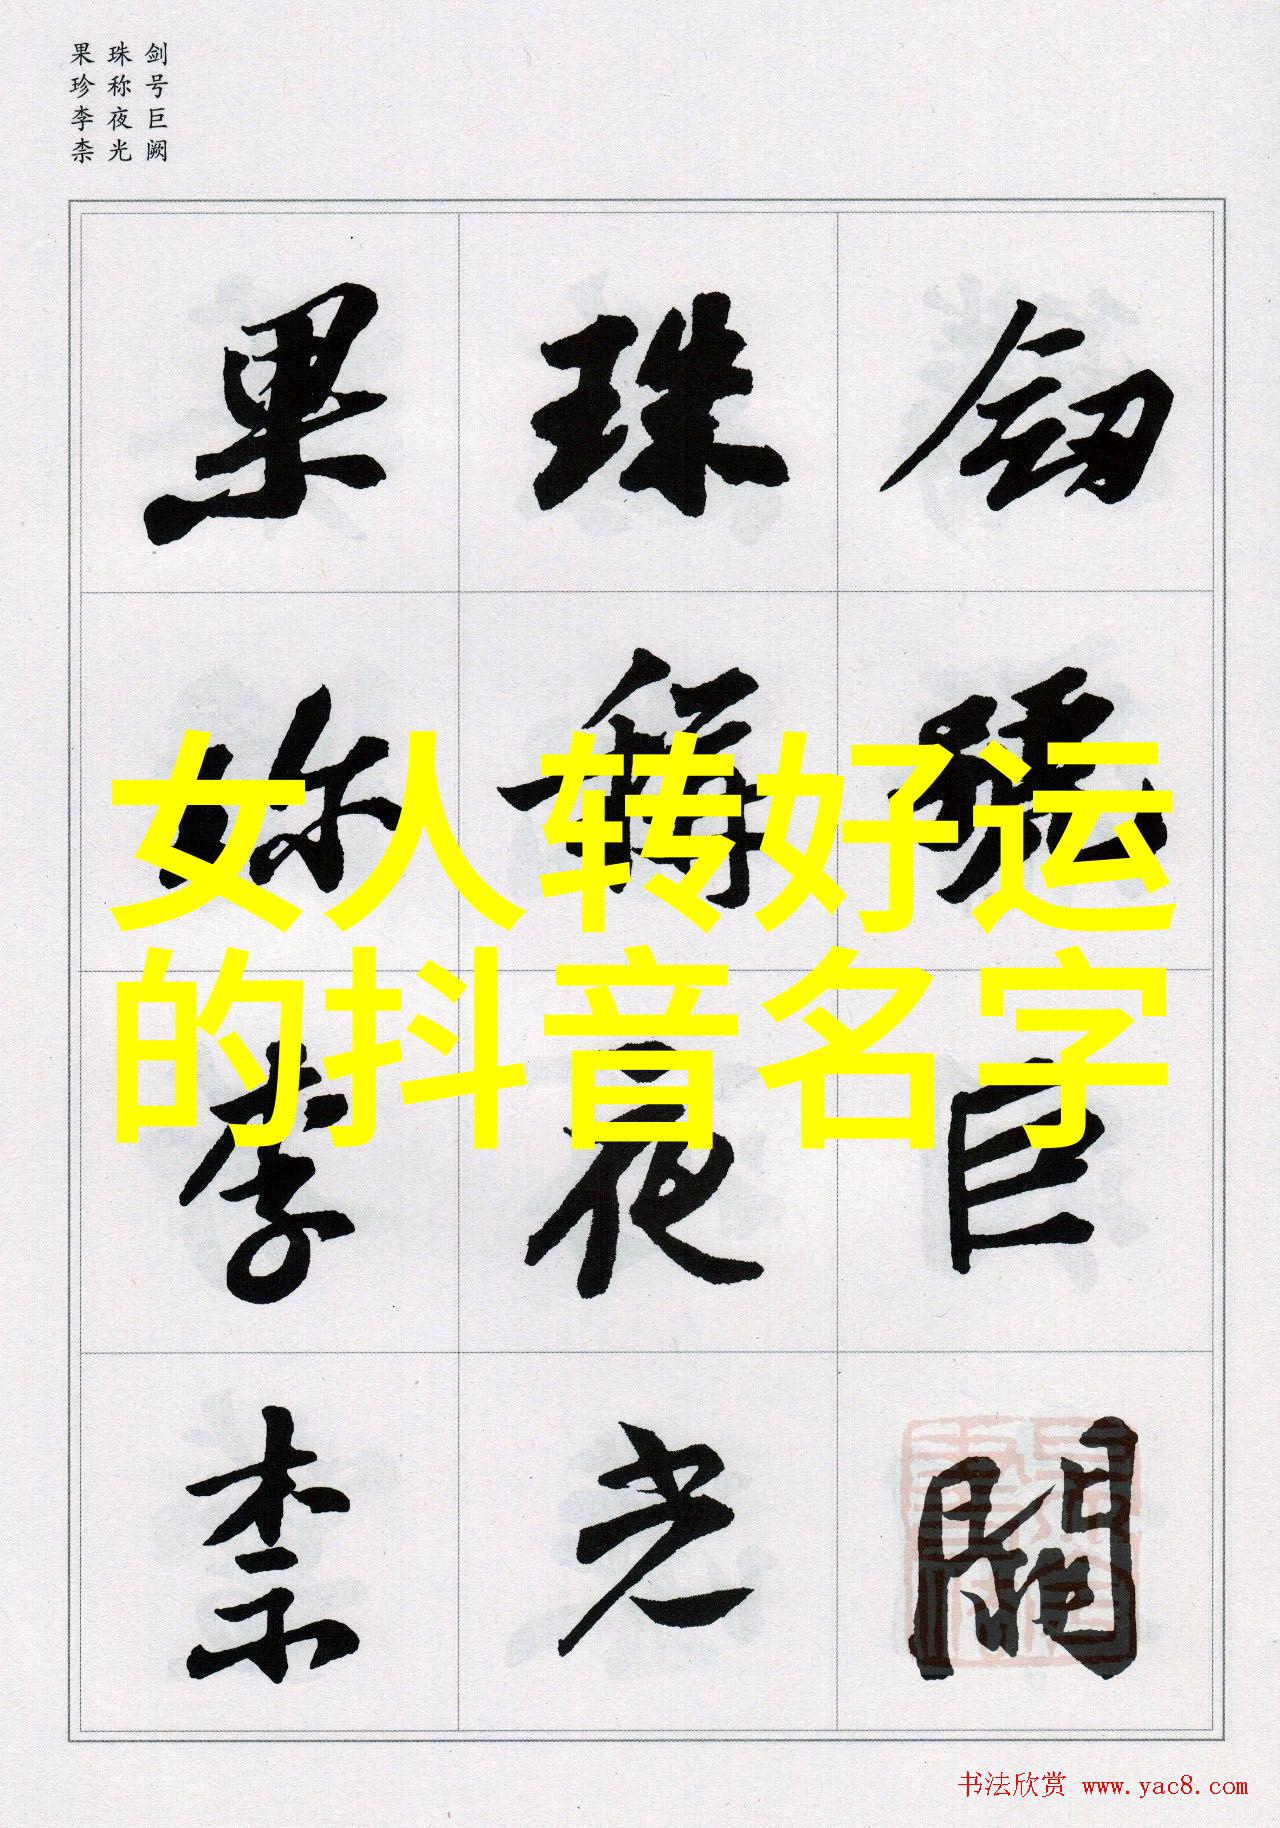 剑号巨阙
珠称夜光
果珍李柰
剑号巨阙
珠称夜光
果珍李柰
女人转好运
的抖音名字
书法欣赏 www.yac8.com